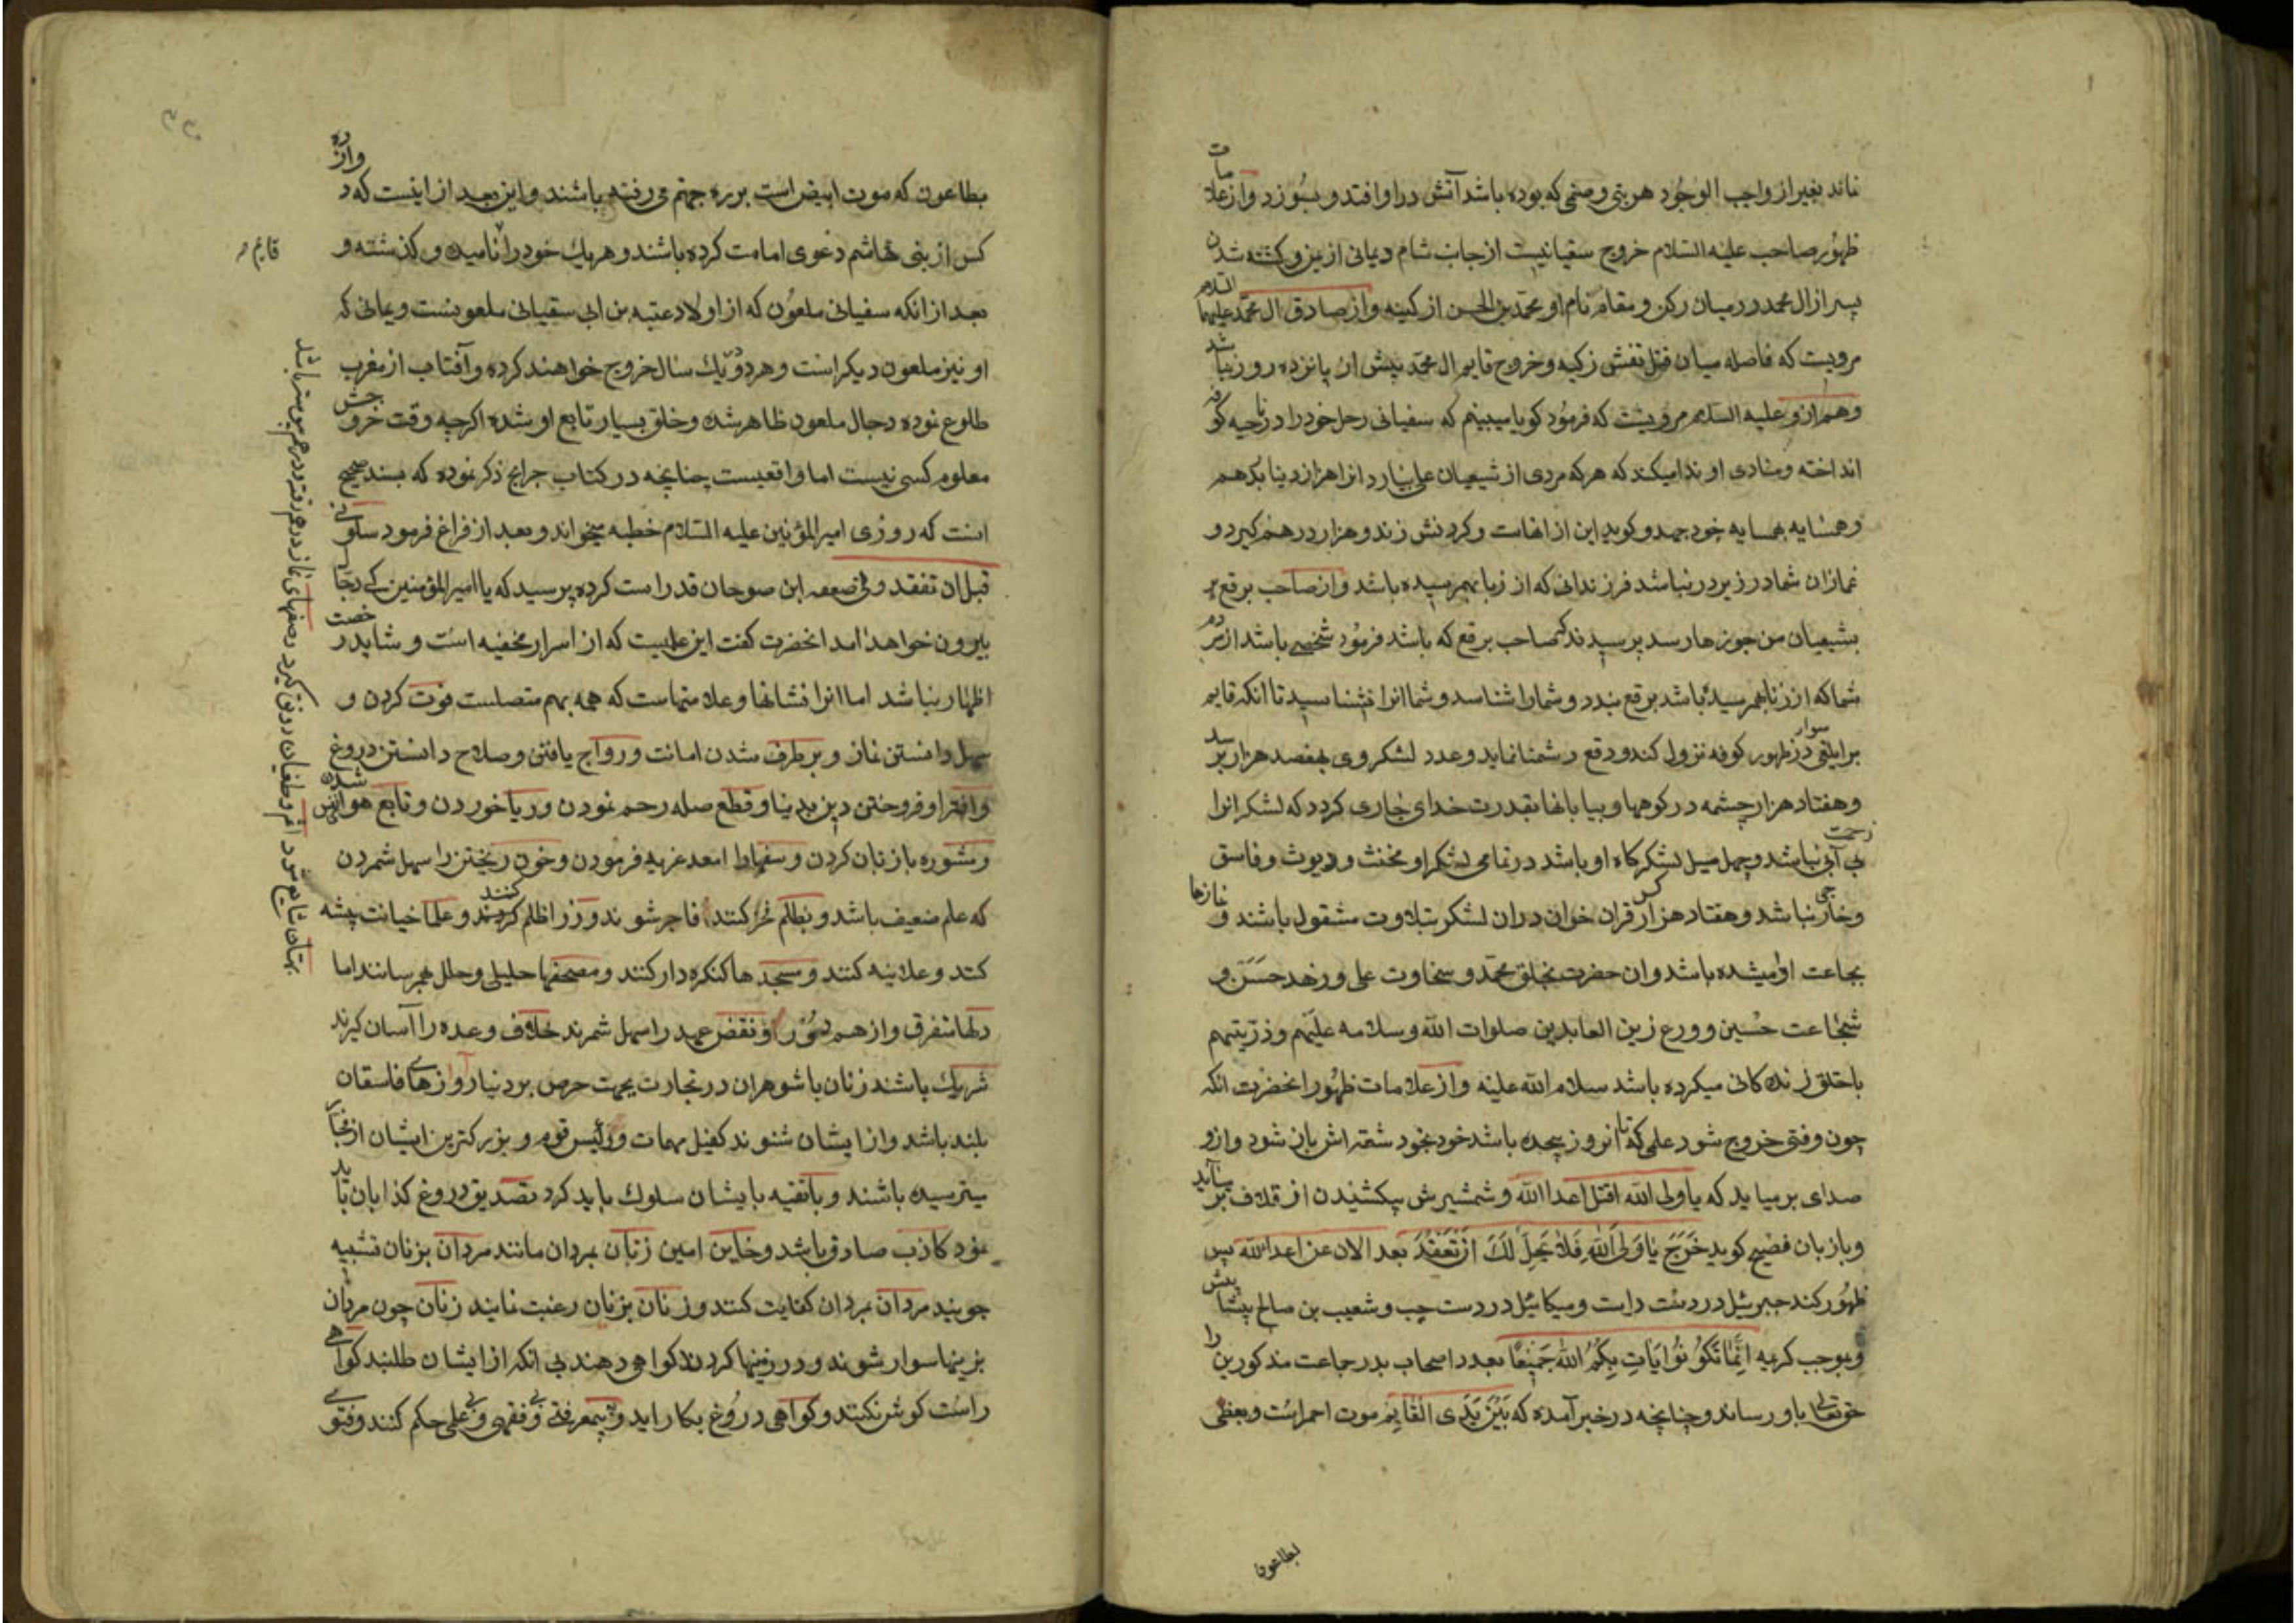 نماند بغیر از واجب الوجود هر بتی و صنمی که بوده باشد آتش در او افتد و بسوزد و از علامات
ظهور صاحب علیه السلام خروج سفیانیست از جانب شام و یمانی از یمن و کشته شدن
پسر از ال محمد در میان رکن و مقام نام او محمد بن الحسن از کینه و از صادق ال محمد علیهما السلام
مرویست که فاصله میان قتل نفس زکیه و خروج قایم ال محمد بیش از پانزده روز نباشد
و هم از و علیه السلام مرویست که فرمود کویا میبینم که سفیانی رحل خود را در ناحیه کوفه
انداخته و منادی او ندا میکند که هر که مردی از شیعیان علی بیارد انرا هزار دینا بدهم
و همسایه بهمسایه خود جهد و کوید این از انهاست و کردنش زند و هزار درهم کیرد و
غمازان شما در زیر در نباشد فرزندانی که از زنا بهم رسیده باشد و از صاحب برقع بر
بشیعیان من جورها رسد پرسیدند که صاحب برقع که باشد فرمود شخصی باشد از مردم
شما که از زنا بهم رسیده باشد برقع بندد و شما را شناسد و شما انرا نشناسید تا انکه قایم
در ظهور کوفه نزول کند و دفع دشمنا نماید و عدد لشکر وی بهفصد هزار سوار رسد
و هفتاد هزار چشمه در کوهها و بیابانها بقدرت خدای جاری کردد که لشکر انرا
بی آبی نباشد و چهل میل لشکرکاه او باشد در تمامی لشکر او مخنث و دیوث و فاسق
و خارجی نباشد و هفتاد هزار کس قران خوان دران لشکر بتلاوت مشغول باشند و نمازها
بجاعت اوا میشده باشد و ان حضرت بخلق محمد و سخاوت علی و زهد حسن و
شجاعت حسین و ورع زین العابدین صلوات الله و سلامه علیهم و ذریتهم
باخلق زندکانی میکرده باشد سلام الله علیه و از علامات ظهور انحضرت انکه
چون وقتی خروج شود علمی که تا انروز پیچیده باشد خود بخود شقه اش باز شود و ازو
صدای بر میاید که یا ولی الله اقتل اعدا الله و شمشیرش بیکشیدن از قلاف بر میآید
و با زبان فصیح کوید خرج یا ولی الله فلا یحل لک ان تقعد بعد الان عن اعدا الله پس
ظهور کند جبرئیل در دست راست و میکائیل در دست چپ و شعیب بن صالح پیشاپیش
و بموجب کریمه اینما تکونوا یات بکم الله جمیعا بعدد اصحاب بدر جاعت مذکورین را
حق تعالی باو رساند و چنانچه در خبر آمده که بین یدی القایم موت احمر است و بعضی
بطاعون
بطاعون که موت ابیض است بر ره جهنم می رفته باشند و این بعد از اینست که دوازده
کس از بنی هاشم دعوی امامت کرده باشند و هر یک خود را نامیده و کذشته و
قایم
بعد از انکه سفیانی ملعون که از اولاد عتبه بن ابی سفیانی ملعونست و یمانی که
او نیز ملعون دیکر است و هر دو یک سال خروج خواهند کرده و آفتاب از مغرب
طلوع نموده دجال ملعون ظاهر شده و خلق بسیار تابع او شده اکرچه وقت خروجش
معلوم کسی نیست اما واقعیست چنانچه در کتاب جرایح ذکر نموده که بسند صحیح
است که روزی امیر المؤمنین علیه السلام خطبه میخواند و بعد از فراغ فرمود سلونی
قبل ان تفقدونی صعصعه ابن صوحان قد راست کرده پرسید که یا امیر المؤمنین کی دجال
بیرون خواهد امد انحضرت کفت این علمیست که از اسرار مخفیه است و شاید رخصت
اظهار نباشد اما انرا نشانها و علامتهاست که همه بهم متصلست فوت کردن و
سهل دانستن نماز و بر طرف شدن امانت و رواج یافتن و صلاح دانستن دروغ
و افترا و فروختن دین بدینا و قطع صله رحم نمودن و ربا خوردن و تابع هوا شدن
و مشوره با زنان کردن و سفهاط و خون ریختن را سهل شمردن
که علم ضعیف باشد و بظلم فخر کنند فاجر شوند و وزرا ظلم کنند و علما خیانت پیشه
کتد و علانیه کنند و مسجدها کنکره دار کنند و مصحفها حلیلی و حلل بهم رسانند اما
دلها متفرق و از هم و نقض عهد را سهل شمرند خلاف وعده را آسان کیرند
شریک باشند زنان با شوهران در تجارت بجهت حرص بر دنیا آوازهای فاسقان
بلند باشد و از ایشان شنوند کفیل مهمات و رئیس قوم و بزرکترین ایشان از
میترسیده باشند و باتقیه با ایشان سلوک باید کرد تصدیق دروغ کذابان باید
نمود کاذب صادق باشد و خاین امین زنان بمردان مانند مردان بزنان تشبیه
جویند مردان بمردان کفایت کنند و زنان بزنان رغبت نمایند زنان چون مردان
بزینها سوار شوند و در زمینها کردند کواهی دهند بی انکه از ایشان طلبند کواهی
راست کوش نکنند و کواهی دروغ بکار اید و بیمعرفتی و فقهی و بی علمی حکم کنند و فتوی